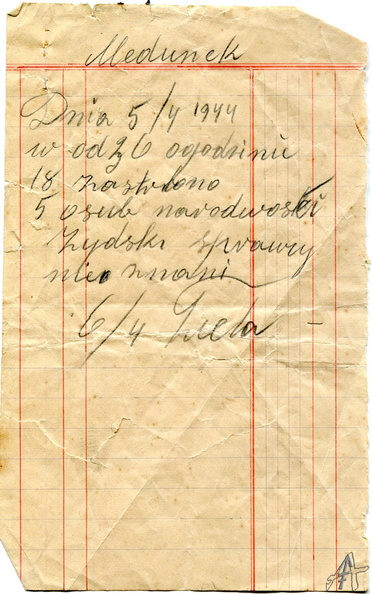 Meldunek
Dnia 5/4 1944
w od 26 ogodzinie
18 zastrlono
5 osub narodwoski
żydski sprawcy
nieo znani
6/4